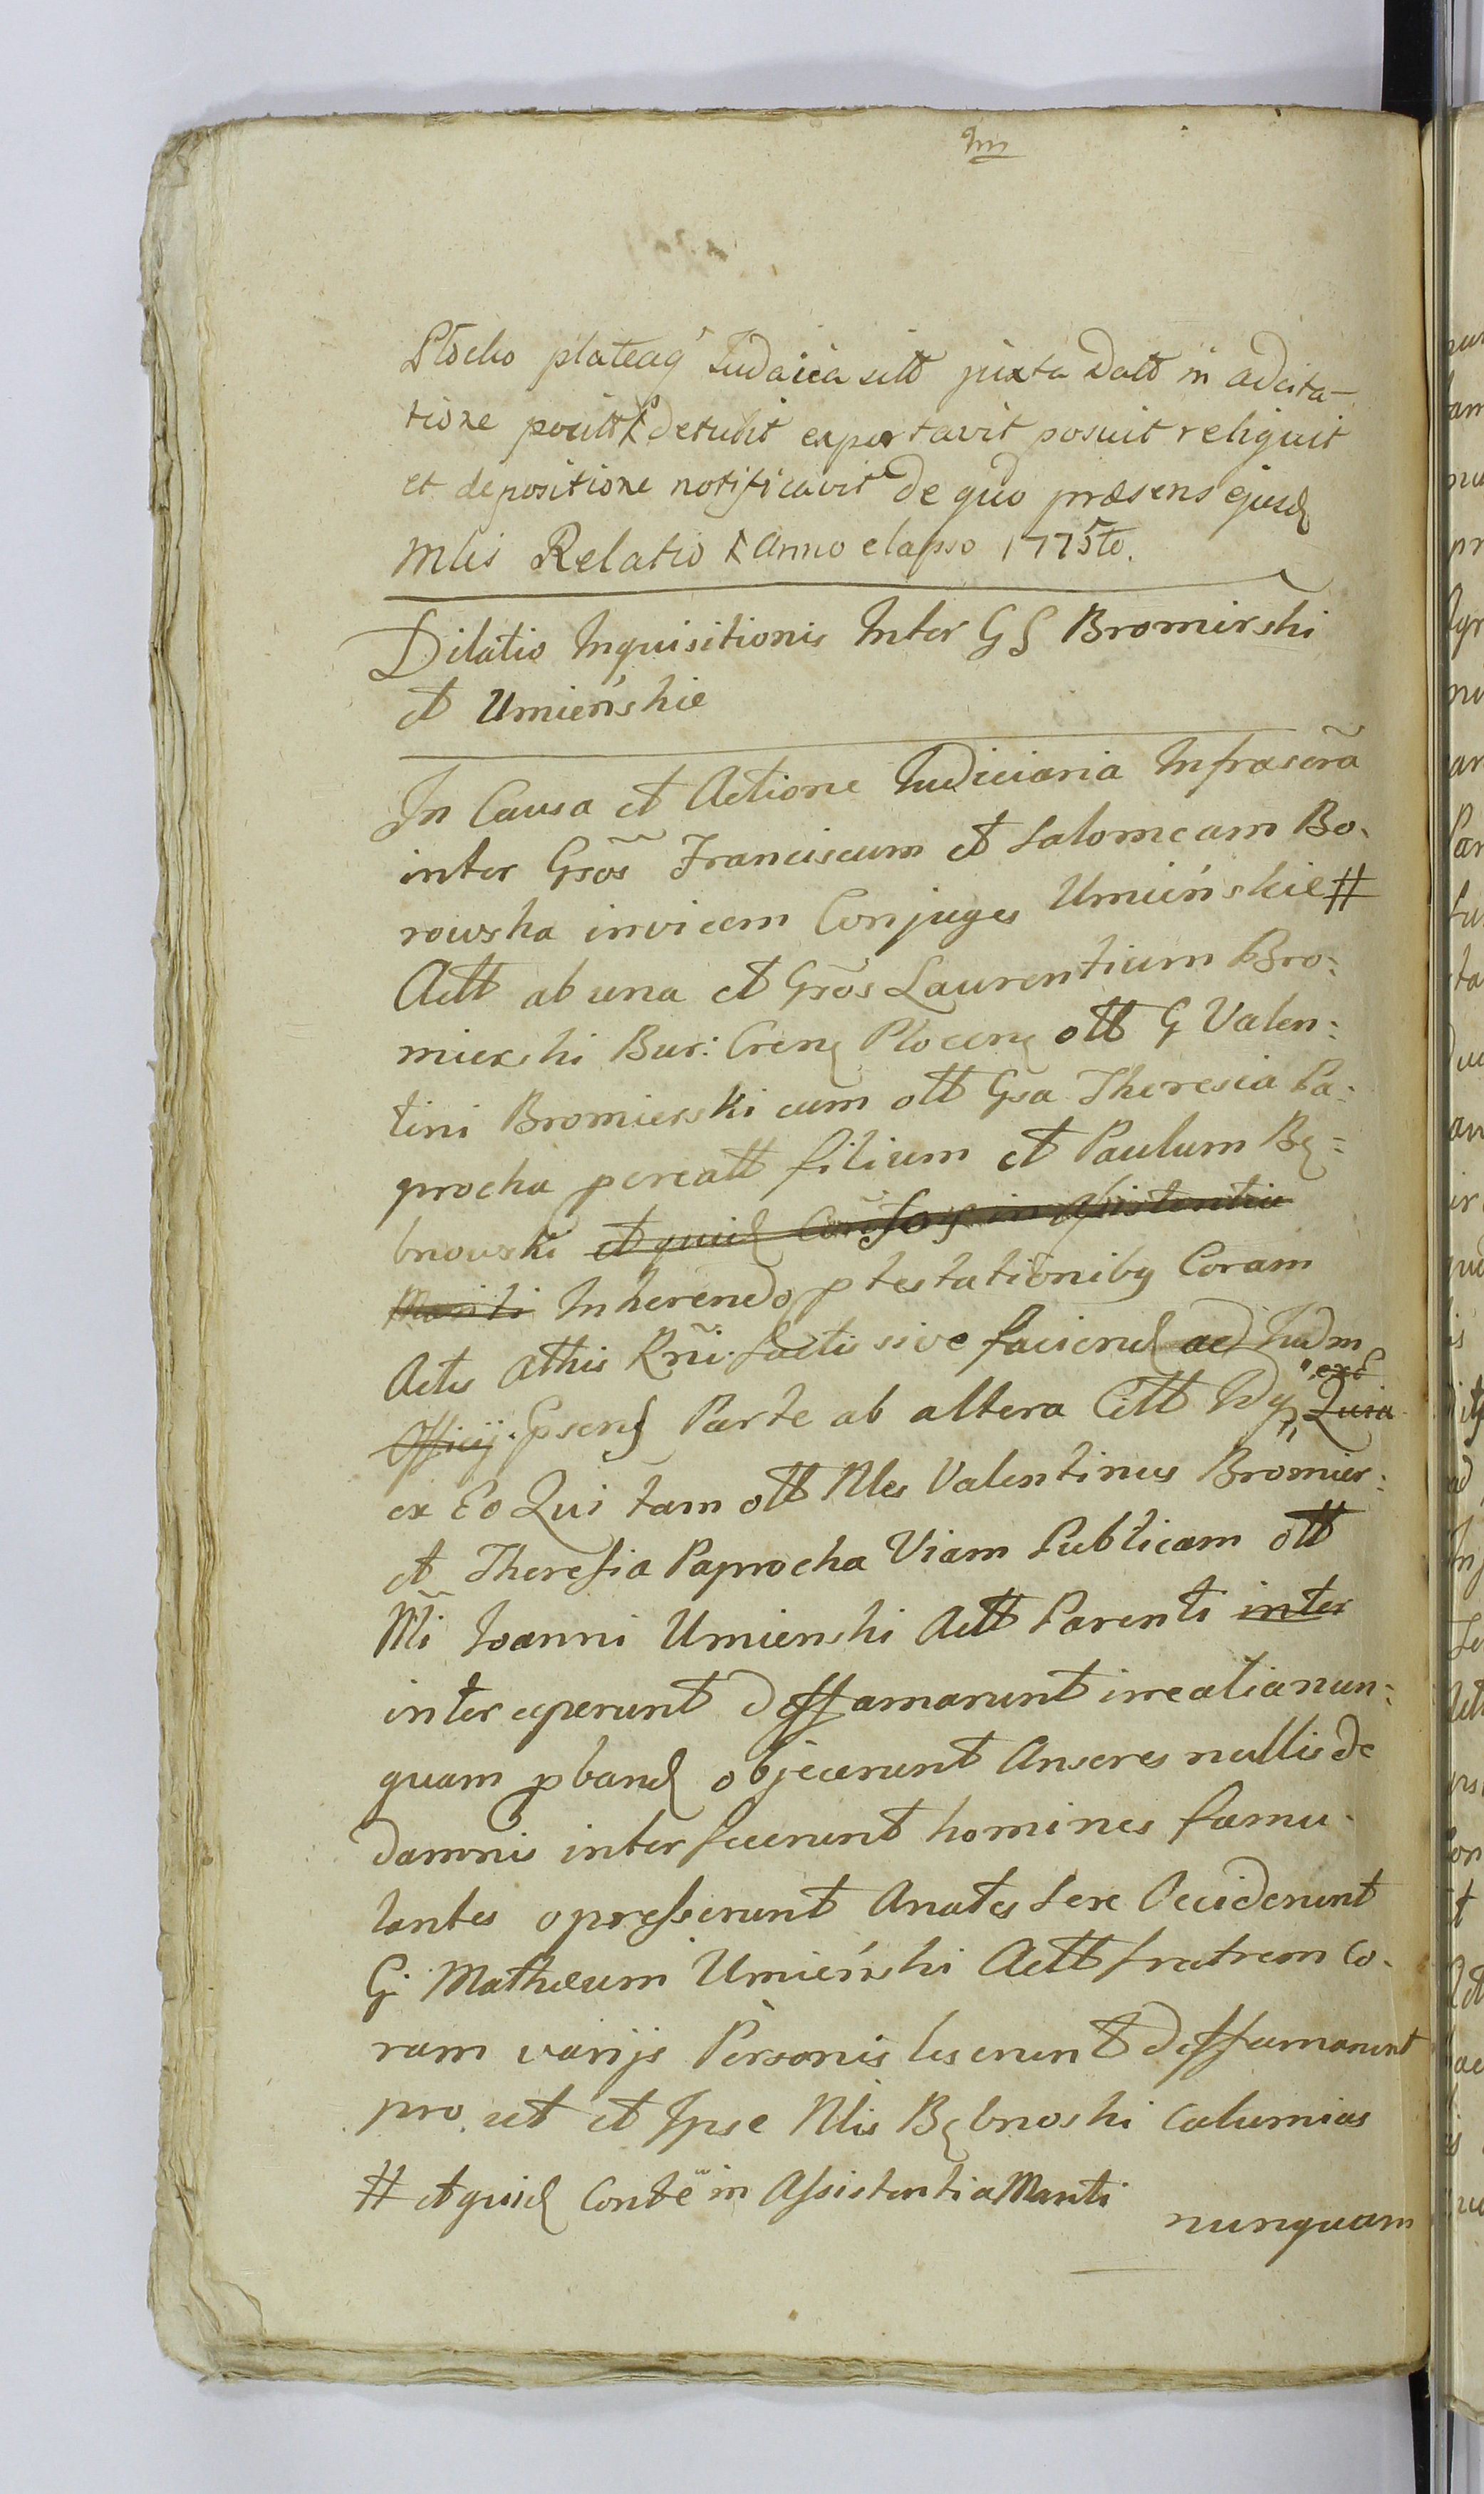 m
Płocko plateaq Judaica sitt juxta Datt in adcita-
tione positt detulit exportavit posuit reliquit
et depositione notificavit de quo præsens ejusd
Mlis Relatio Anno elapso 1775to.
Dilatio Inquisitionis Inter GS Bromirski
et Umieńskie
In Causa et Actione Judiciaria Infrascra
inter Gsos Franciscum et Salomeam Bo-
rowska invicem Conjuges Umieńskie #
Actt ab una et Gsos Laurentium Bro:
mierski Bur: Cren Plocen ott G Valen:
tini Bromierski cum ott Gsa Theresia Pa:
procka pcreatt filium et Paulum Bę=
bnowski et quid in Assistentia
Mariti Inherendo ptestationiby Coram
Actis Atthis Rni factis sive faciend ad Judm
Officij. Psens Parte ab altera Citt Idq exe Quia
ex Eo Qui tam ott Nles Valentinus Bromier:
et Theresia Paprocka Viam Publicam ott
Mi Joanni Umienski Actt Parenti inter
interceperunt deffamarunt irrealia nun:
quam pband objecerunt Anseres nullis de
damnis interfecerunt homines famu-
lantes opresserunt Anates fere Occiderunt
G. Matheum Umieński Actt fratrem Co-
ram varijs Personis leserunt deffamarunt
pro ut et Ipse Nlis Bębnoski calumias
# et quid Conte in Assistentia Mariti
nunquam